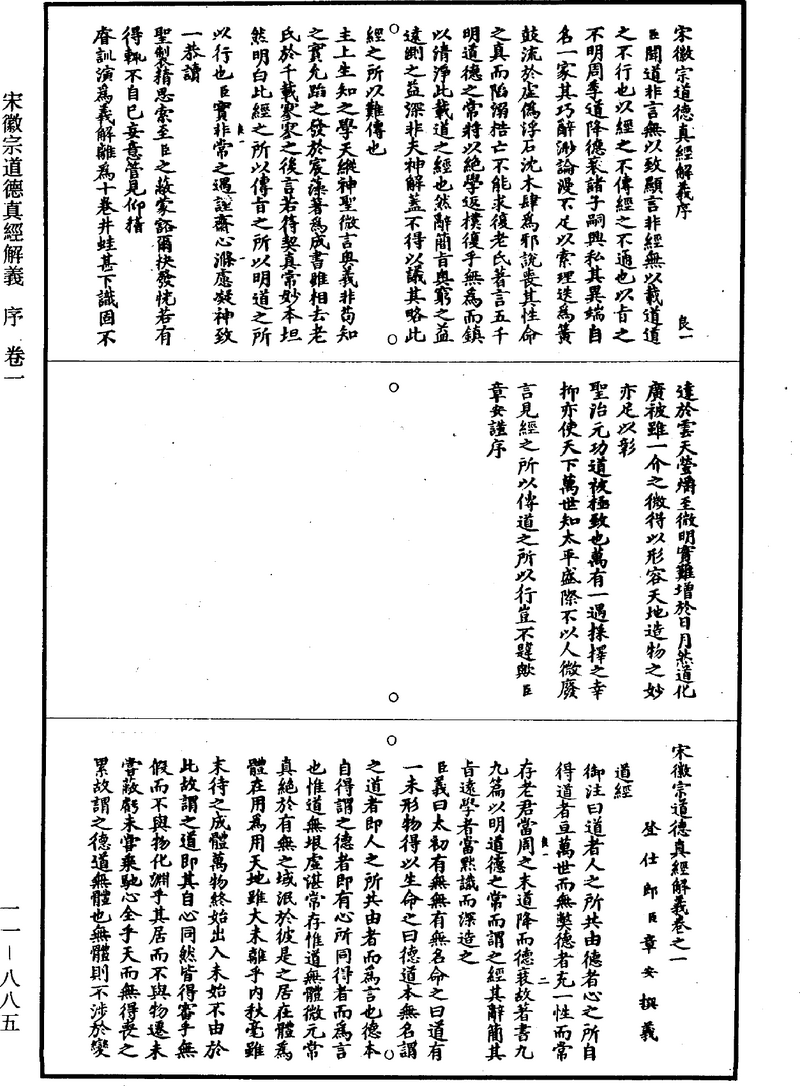 宋徽宗道德真經解義序　卷一
宋徽宗道德真經解義序
良一
臣聞道非言無以致顯言非經無以載道道
之不行也以經之不傳經之不通也以旨之
不明周季道降德衰諸子嗣興私其異端自
名一家其巧解渺論漫不足以索理迭為簧
鼓流於虛偽浮石沈木肆為邪說喪其性命
之真而陷溺梏亡不能求復老氏著言五千
明道德之常將以絕學返樸復乎無為而鎮
以清淨此載道之經也然辭簡旨奧窮之益
遠測之益深非夫神解蓋不得以議其略此
經之所以難傳也
主上生知之學天縱神聖微言奧義非苟知
之實允蹈之發於宸藻著為成書雖相去老
氏於千載寥寥之後言若符契真常妙本坦
然明白此經之所以傳旨之所以明道之所
以行也臣實非常之遇詮齋心滌慮凝神致
一恭讀
聖製精思索至臣之蔽蒙豁爾抉發恍若有
得輒不自已妄意管見仰稽
睿訓演為義解離為十卷井蛙甚下識固不
達於雲天螢爝至微明實難增於日月然道化
廣被雖一介之微得以形容天地造物之妙
亦足以彰
聖治元功道被極致也萬有一遇採擇之幸
抑亦使天下萬世知太平盛際不以人微廢
言見經之所以傳道之所以行豈不韙歟臣
章安謹序
宋徽宗道德真經解義卷之一
登仕郎臣章安撰義
道經
御注曰道者人之所共由德者心之所自
得道者亘萬世而無弊德者充一性而常
存老君當周之末道降而德衰故著書九
九篇以明道德之常而謂之經其辭簡其
旨遠學者當默識而深造之
臣義曰太初有無無有無名命之曰道有
一未形物得以生命之曰德道本無名謂
之道者即人之所共由者而為言也德本
自得謂之德者即有心所同得者而為言
也惟道無垠虛湛常存惟道無體微元常
真絕於有無之域泯於彼是之居在體為
體在用為用天地雖大未離乎內秋毫雖
末待之成體萬物終始出入未始不由於
此故謂之道即其自心同然皆得審乎無
假而不與物化淵乎其居而不與物遷未
嘗蔽虧未嘗乘馳心全乎天而無得喪之
累故謂之德道無體也無體則不涉於變
一一—八八五